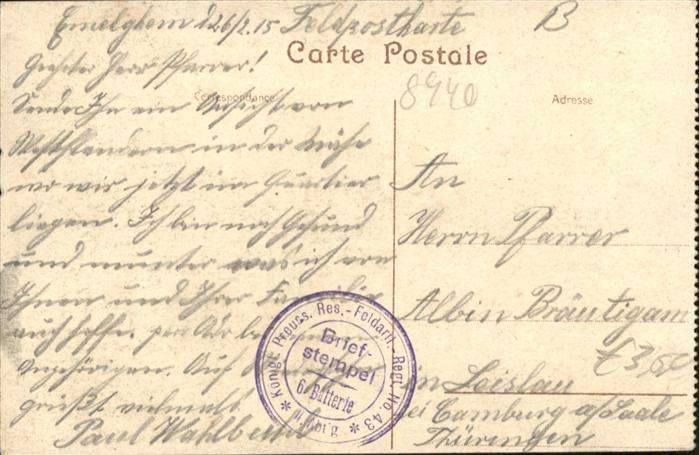 Emelghem d 26/2.15 Feldpostkarte
B
Carte Postale
Geehrter Herr Pfarrer!
Correspondance
8940
Adresse
Sende Ihn ein Ansicht von
Westflandern in der Nähe
wo wir jetzt im Quartier
liegen. Ich bin noch Gesund
und munter was ich von
Ihnen und Ihrer Familie
auch hoffe.
Angehörigen. Auf
grüßt vielmals
Paul
An
Herrn Pfarrer
Albin Bräutigam
£ 3,50
in Leislau
bei Camburg a/Saale
Thüringen
Königl. Preuss. Res.-Feldartl.-Regt. No. 43
Brief-
stempel
6. Batterie